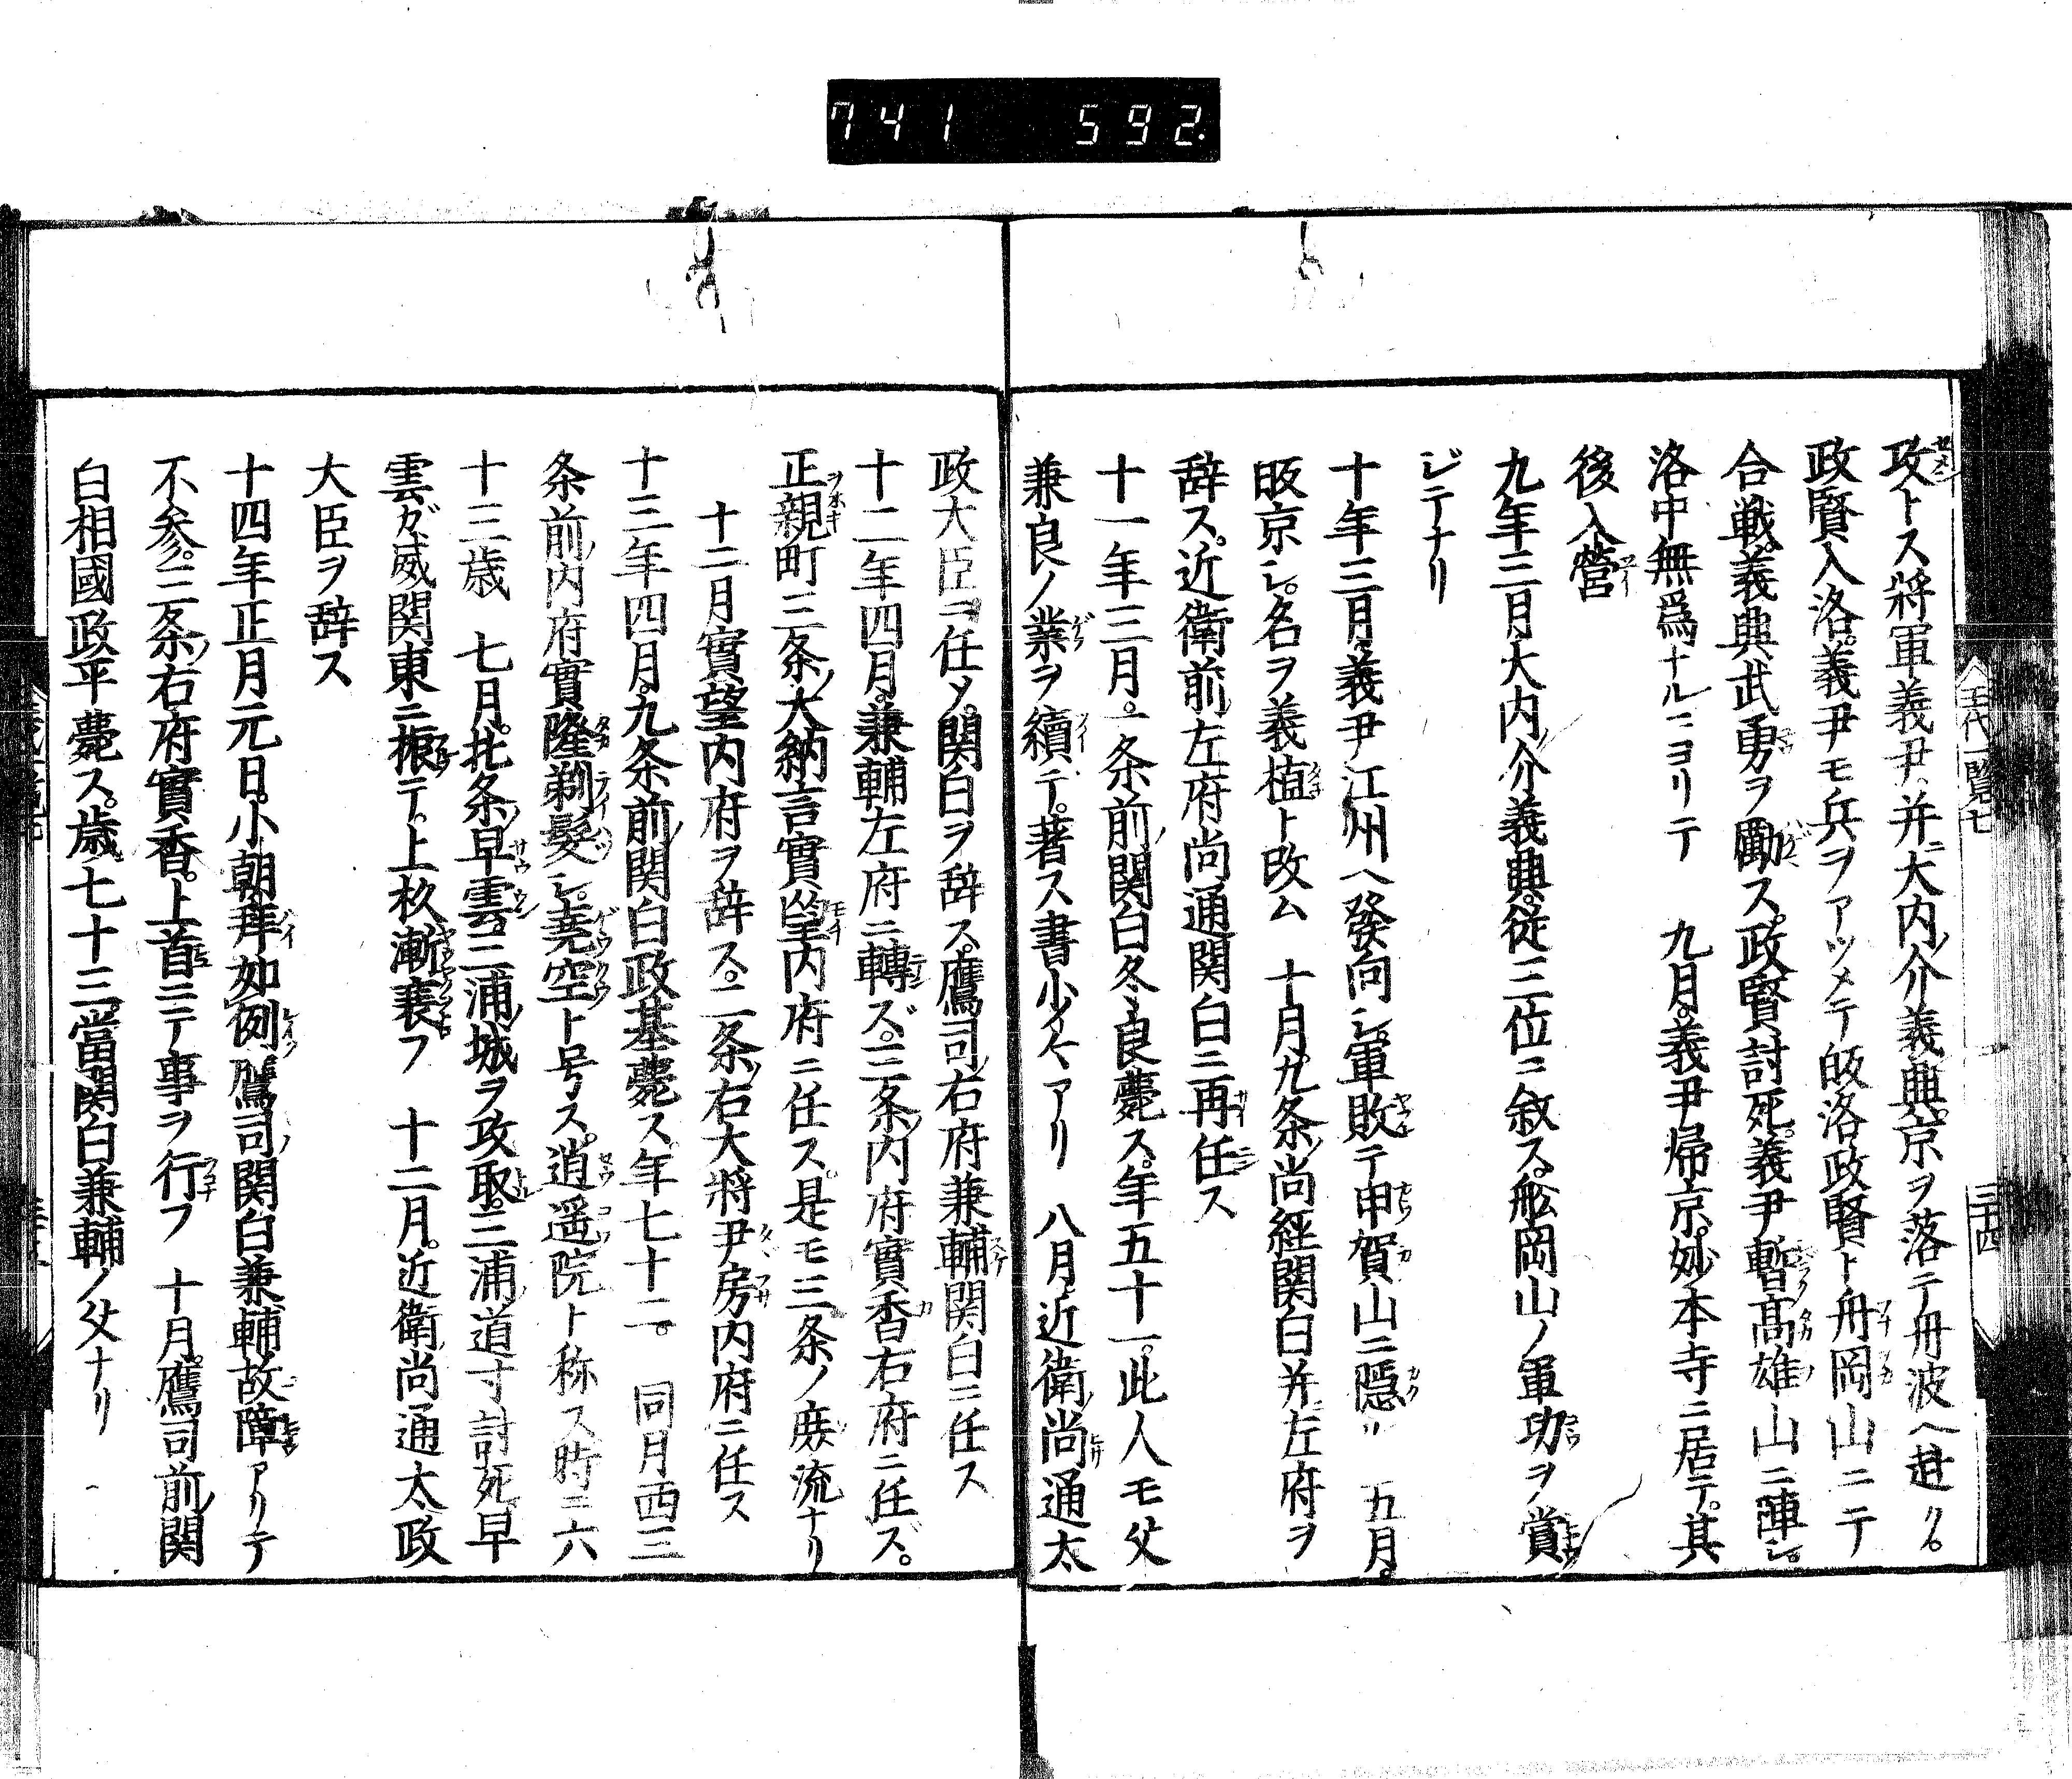 741 592
王代一覧七
三十四
攻トス将軍義尹并ニ大内ノ介義興京ヲ落テ丹波ヘ赴ク。
政賢入洛。義尹モ兵ヲアツメテ皈洛政賢ト舟岡山ニテ
合戦。義興武勇ヲ勵ス。政賢討死。義尹暫髙雄山ニ陣シ。
洛中無爲ナルニヨリテ 九月。義尹帰京。妙本寺ニ居テ。其
後入營
九年三月。大内ノ介義興。従三位ニ叙ス。舩岡山ノ軍功ヲ賞
ジテナリ
十年三月。義尹江州ヘ發向シ。軍敗テ甲賀山ニ隠ル 五月。
皈京シ。名ヲ義植ト改ム 十月。九条ノ尚經関白并左府ヲ
辞ス。近衛前ノ左府尚通関白ニ再任ス
十一年三月。一条前ノ関白冬良薨ス。年五十一。此人モ父
兼良ノ業ヲ續テ。著ス書少々アリ 八月。近衛ノ尚通太
政大臣ニ任メ。関白ヲ辞ス。鷹司ノ右府兼輔関白ニ任ス
十二年四月。兼輔左府ニ轉ズ。三条ノ内府實香右府ニ任ズ。
正親町三条ノ大納言實望内府ニ任ス。是モ三条ノ庶流ナリ
十二月實望内府ヲ辞ス。二条ノ右大将尹房内府ニ任ス
十三年四月。九条前ノ関白政基薨ス。年七十二。 同月西三
条前ノ内府實隆剃髮シ。堯空ト号ス。逍遥院ト称ス時ニ六
十三歳 七月。北条ノ早雲。三浦ノ城ヲ攻取。三浦ノ道寸討死早
雲ガ威関東ニ振テ。上杦漸衰フ 十二月。近衛ノ尚通太政
大臣ヲ辞ス
十四年正月元日。小朝拜如例。鷹司ノ関白兼輔故障アリテ
不参。三条ノ右府實香。上首ニテ事ヲ行フ 十月。鷹司前ノ関
白相國政平薨ス。歳七十三。當関白兼輔ノ父ナリ